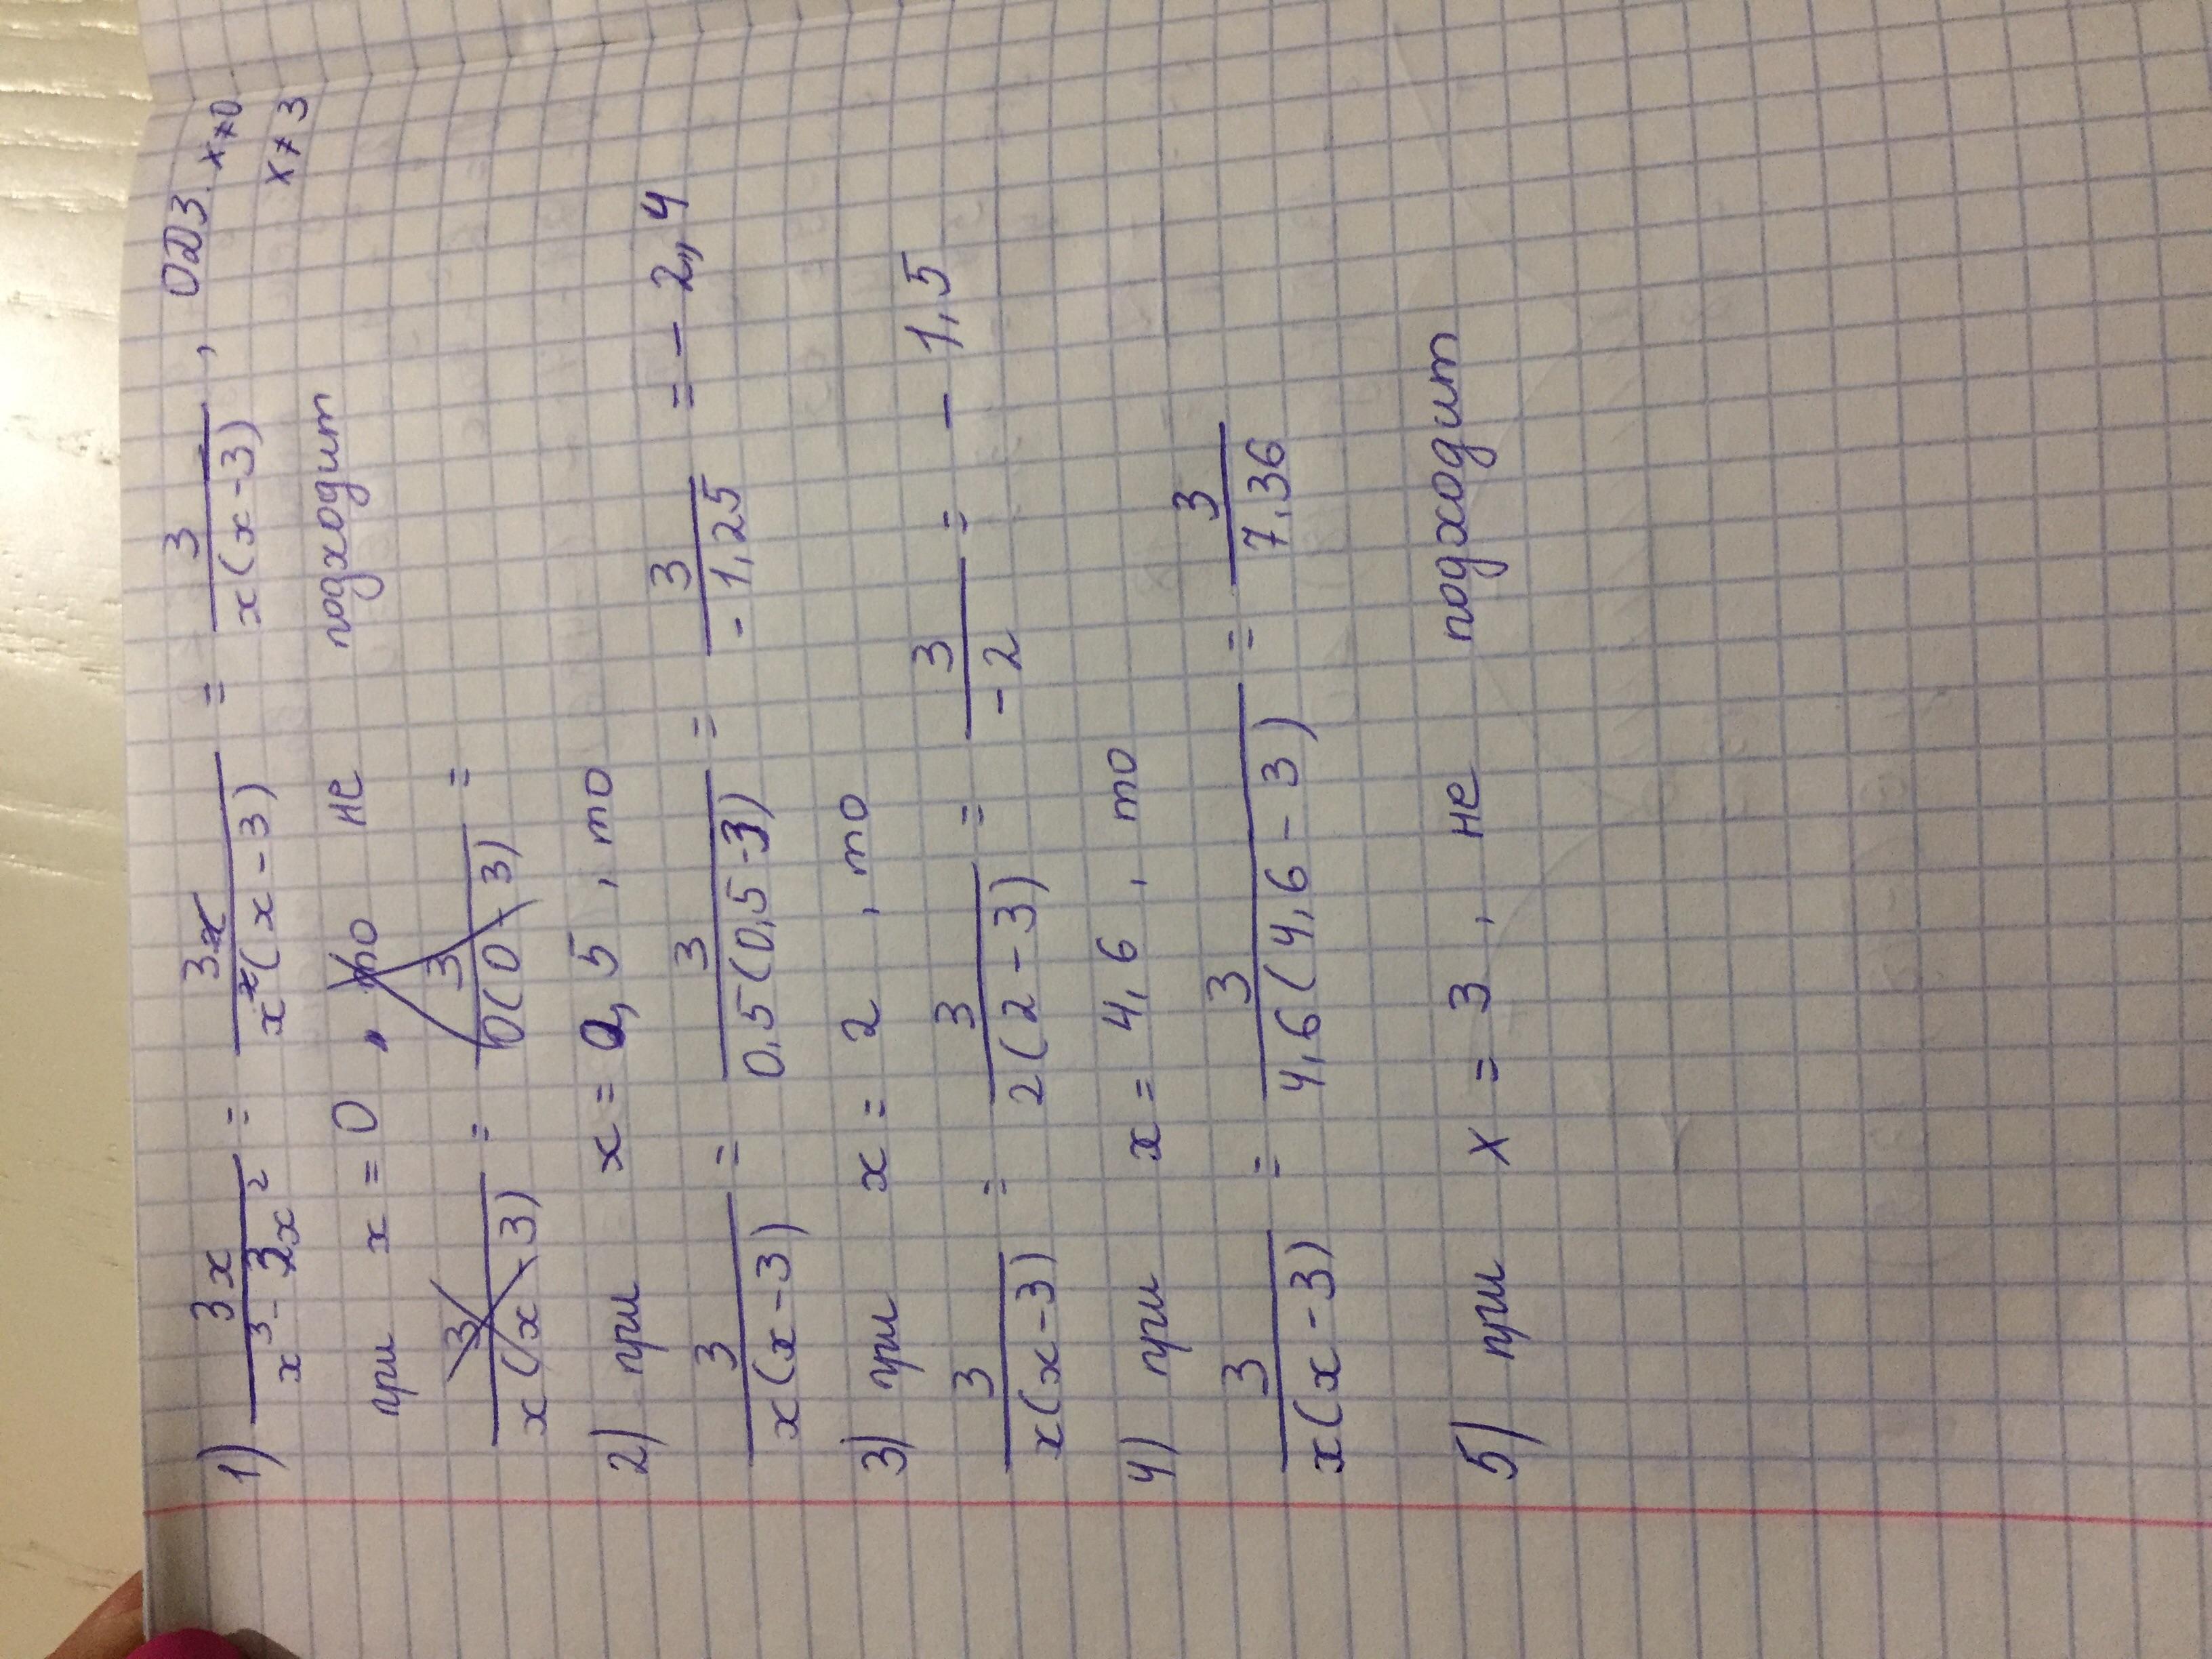 1) 3x/(x³ - 3x²) = 3x/(x²(x - 3)) = 3/(x(x - 3)), ОДЗ. x≠0
x≠3
при x = 0, то не подходит
3/(x(x 3)) = 3/(0(0 3)) =
2) при x = 0,5, то
3/(x(x - 3)) = 3/(0,5(0,5 - 3)) = 3/(-1,25) = - 2,4
3) при x = 2, то
3/(x(x - 3)) = 3/(2(2 - 3)) = 3/(-2) = - 1,5
4) при x = 4,6, то
3/(x(x - 3)) = 3/(4,6(4,6 - 3)) = 3/7,36
5) при x = 3, не подходит